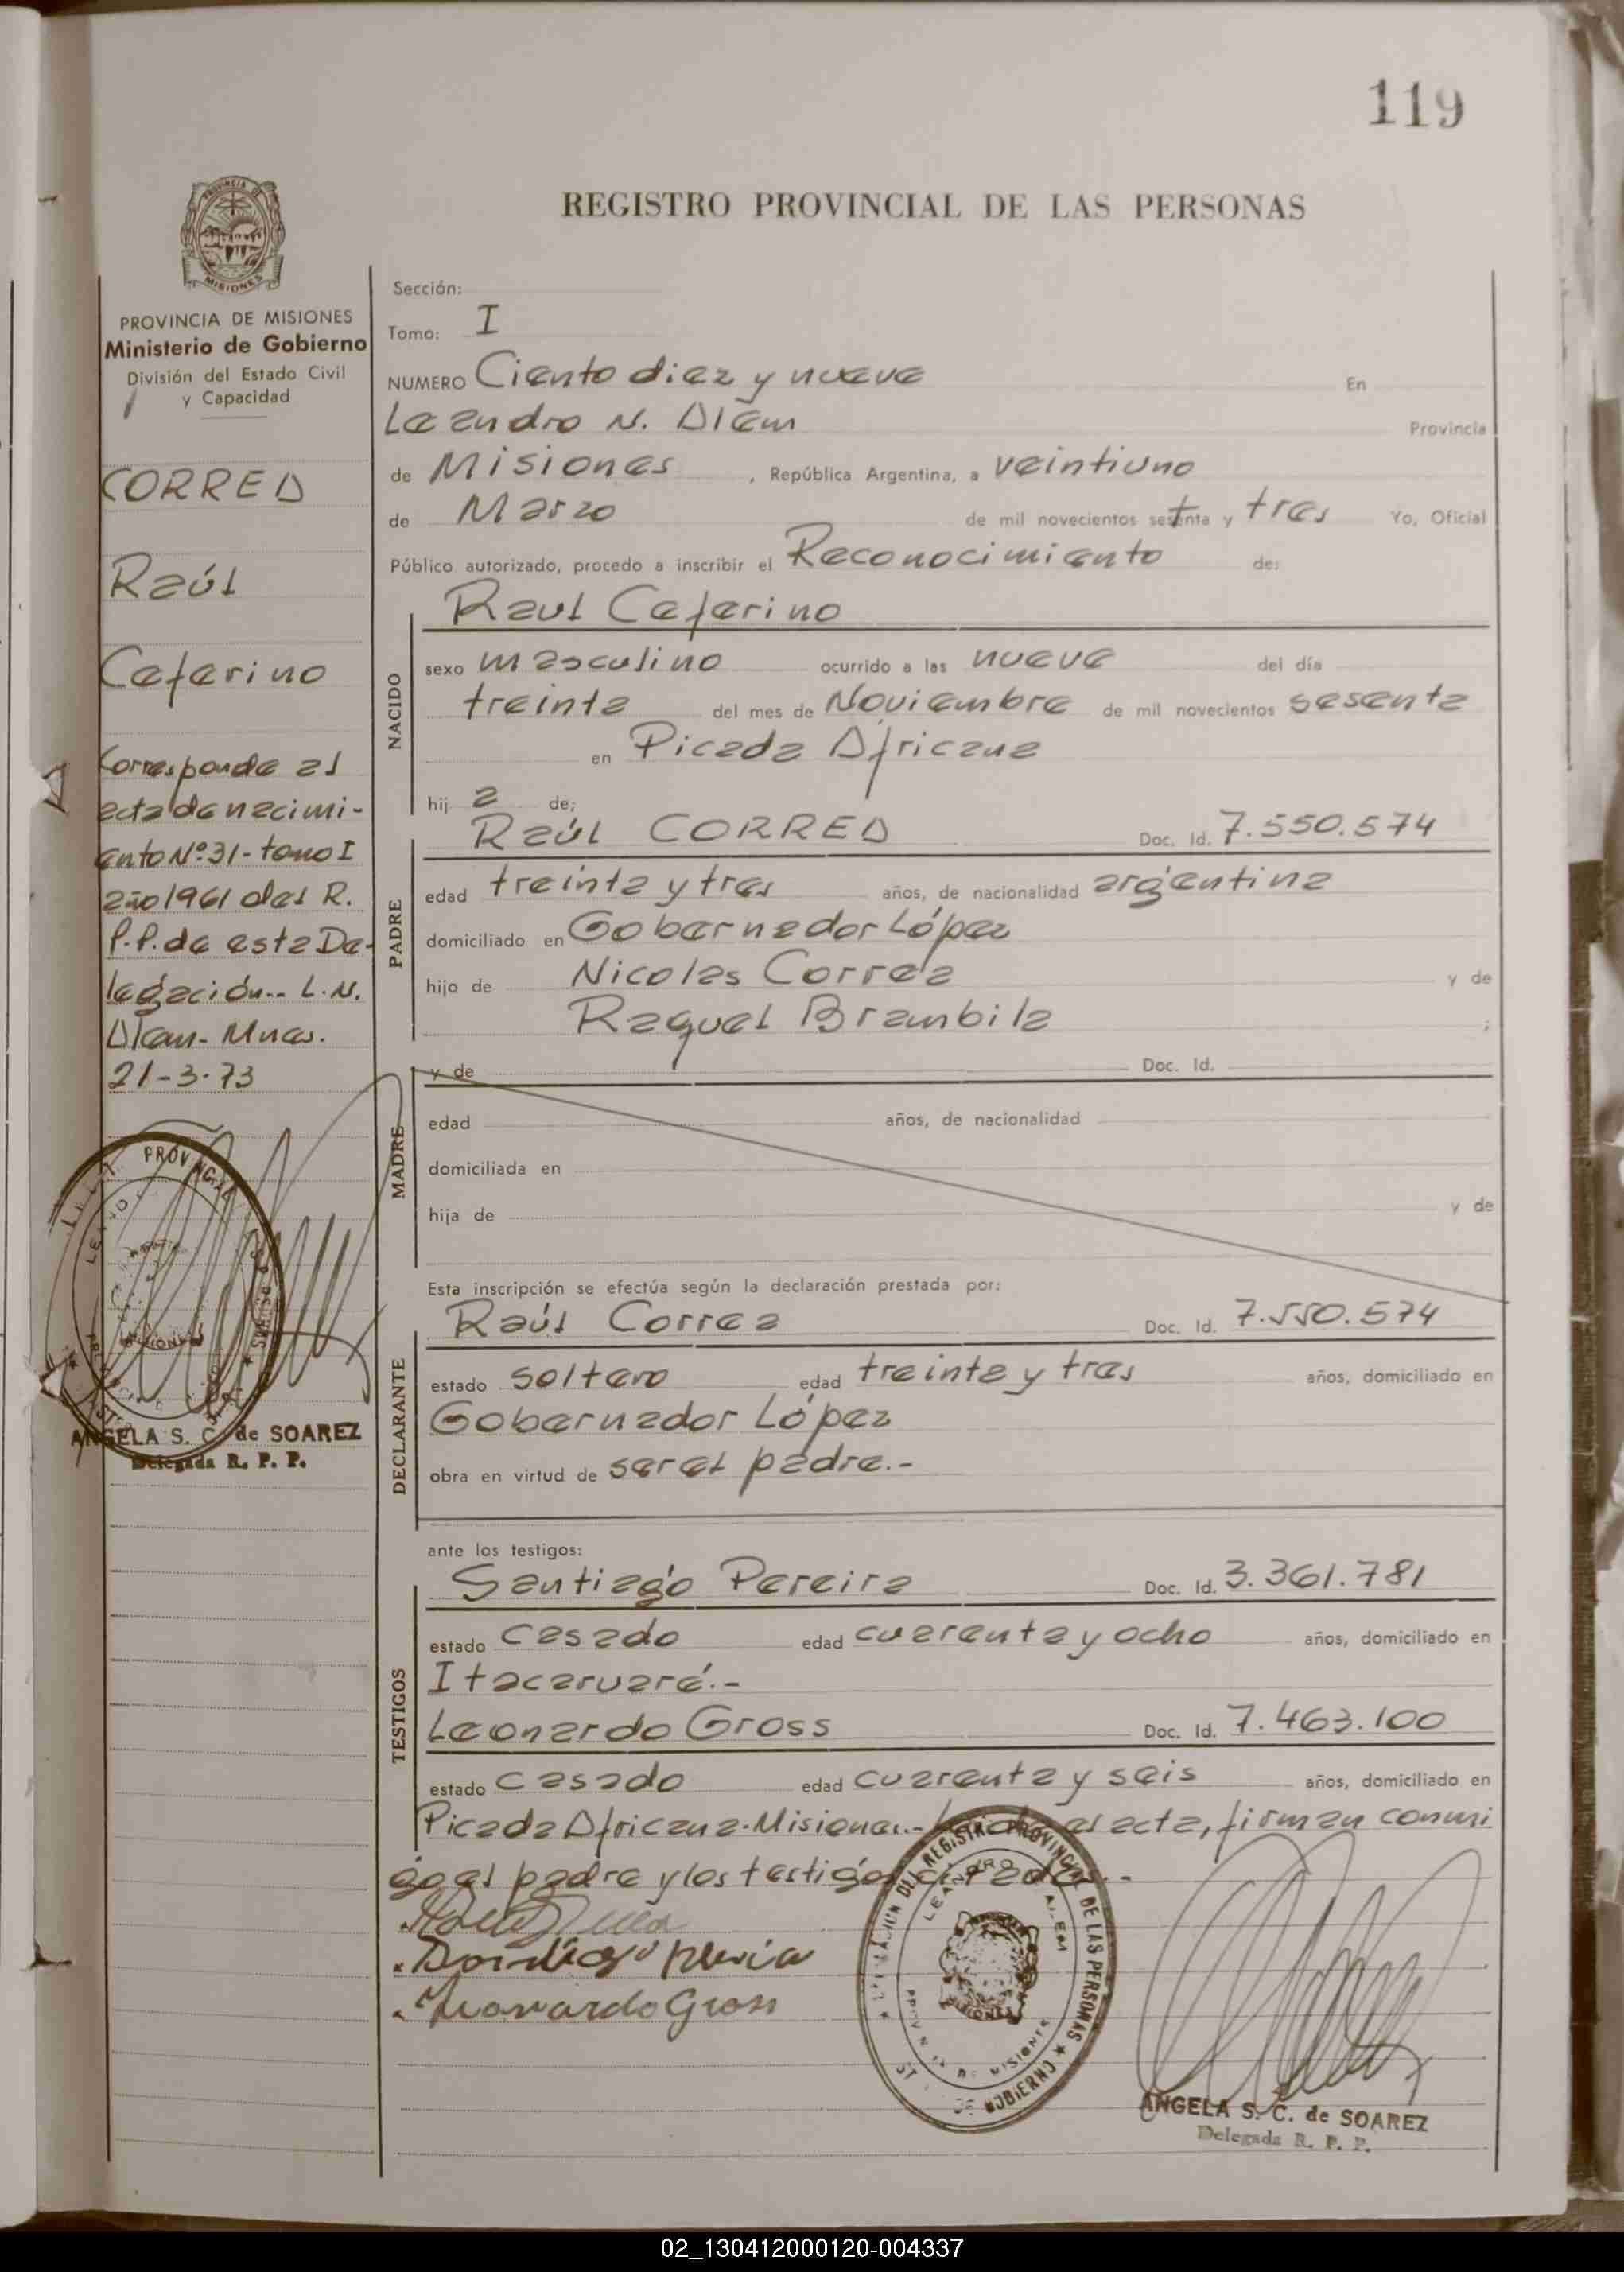 119
REGISTRO PROVINCIAL DE LAS PERSONAS
PROVINCIA DE
MISIONES
PROVINCIA DE MISIONES
Ministerio de Gobierno
División del Estado Civil
y Capacidad
CORREA
Raúl
Ceferino
Corresponde al
acta de nacimi-
ento Nº 31- tomo I
año 1961 del R.
P.P. de esta De-
legación.- L.N.
Alem- Mnes.
21-3-73
ANGELA S. C. de SOAREZ
Delegada R. P. P.
Sección:
Tomo: I
NUMERO Ciento diez y nueve En
Leandro N. Alem Provincia
de Misiones , República Argentina, a veintiuno
de Marzo de mil novecientos setenta y tres Yo, Oficial
Público autorizado, procedo a inscribir el Reconocimiento de:
Raul Ceferino
NACIDO
sexo masculino ocurrido a las nueve del día
treinta del mes de Noviembre de mil novecientos sesenta
en Picada Africana
hij a de;
Raúl CORREA Doc. Id. 7.550.574
PADRE
edad treinta y tres años, de nacionalidad argentina
domiciliado en Gobernador López
hijo de Nicolas Correa y de
Raquel Brambila ;
y de Doc. Id.
MADRE
edad años, de nacionalidad
domiciliada en
hija de y de
Esta inscripción se efectúa según la declaración prestada por:
Raúl Correa Doc. Id. 7.550.574
DECLARANTE
estado soltero edad treinta y tres años, domiciliado en
Gobernador López
obra en virtud de ser el padre.-
ante los testigos:
Santiago Pereira Doc. Id. 3.361.781
TESTIGOS
estado casado edad cuarenta y ocho años, domiciliado en
Itacaruaré.-
Leonardo Gross Doc. Id. 7.463.100
estado casado edad cuarenta y seis años, domiciliado en
Picada Africana-Misiones.- el acta, firman conmi
go el padre y los testigos
Leonardo Gross
REGISTRO PROVINCIAL DE LAS PERSONAS
LEANDRO ALEM
DE MISIONES
GOBIERNO
ANGELA S. C. de SOAREZ
Delegada R. P. P.
02_130412000120-004337